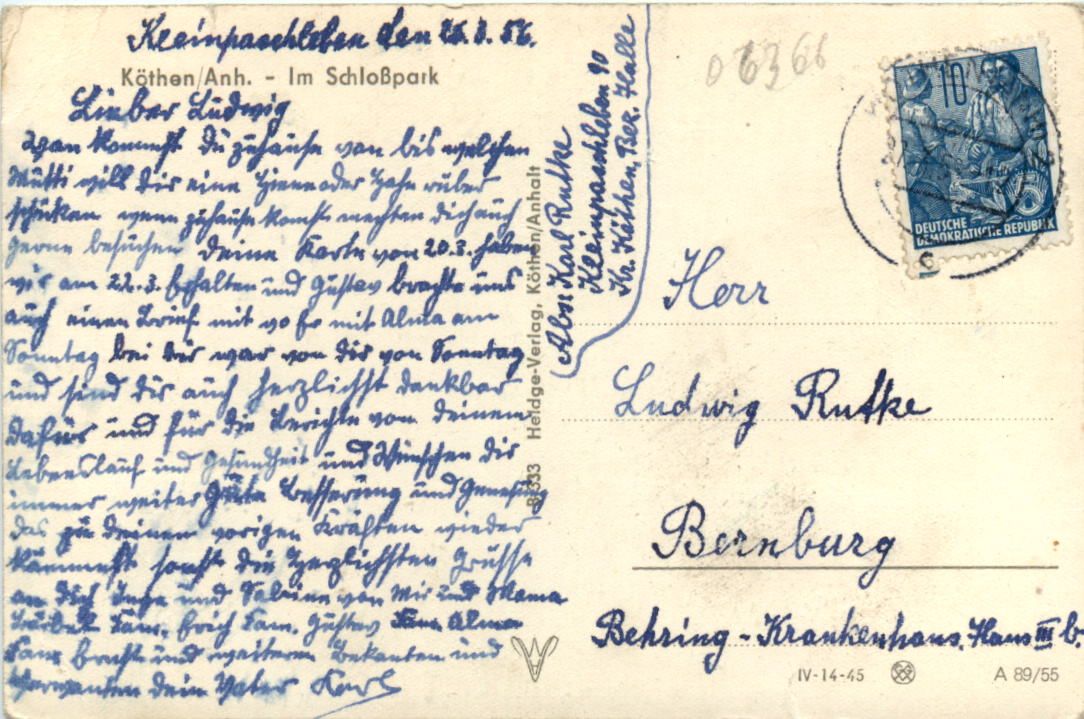 Kleinpaschleben den 26.3.56.
Köthen/Anh. - Im Schloßpark
Lieber Ludwig
wan kommst Du zuhause von bis welchen
Mutti will dir eine Henne oder Hahn rüber
schicken wenn zuhause komst mechten dich auch
gerne besuchen deine Karte von 20.3. haben
wir am 22.3. Erhalten und Gustav brachte uns
auch einen Brief mit wo Er mit Alma am
Sonntag bei dir war von dir von Sonntag
und sind dir auch herzlichst dankbar
dafür und für die Berichte von deinem
Lebenslauf und Gesundheit und Wünschen dir
immer weiter Gute Besserung und Genesung
das zu deinen vorigen Kräften wieder
kommst sonst die Herzlichsten Grüsse
an dich Inge und Sabine von Mir und Mama
Fam. Erich Fam. Gustav Fam Alma
Fam und weiteren Bekanten und
Verwanten dein Vater Karl
B 533 Heldge-Verlag, Köthen/Anhalt
Abs: Karl Rutke
Kleinpaschleben 90
Kr. Köthen, Bez. Halle
06366
10
DEUTSCHE
DEMOKRATISCHE REPUBLIK
Herr
Ludwig Rutke
Bernburg
Behring-Krankenhaus, Haus III b.
IV-14-45 A 89/55